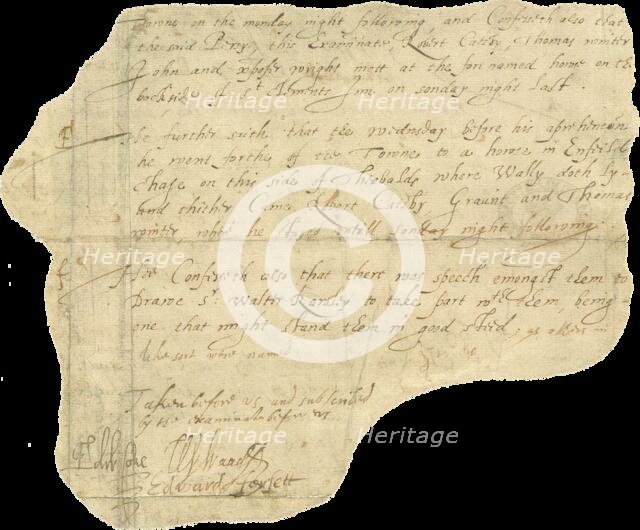 Towne on the monday night following and Confesseth also that
the said Percy, this Examinate, Robert Catesby, Thomas winter
John and xpofer wright mett at the fore named howse on the
backside of St Clements Inn on sonday night last.
He further saith that the wednsday before his aprehencon
he went forthe of the Towne to a howse in Enfeild
chase on this side of Theobalds where Wally doth ly
and thither Came Robert Catesby Graunt and Thomas
winter, where he stayed untill sonday night following
He Confesseth also that there was speech emongst them to
Drawe Sr Walter Rawley to take part wth them, being
one that might stand them in good steed, as others in
like sort were named
Taken before us and subscribed
by the examinate before us
W Waad
Edward Forsett
Heritage
Heritage
Heritage
Heritage
Heritage
Heritage
Heritage
Heritage
C